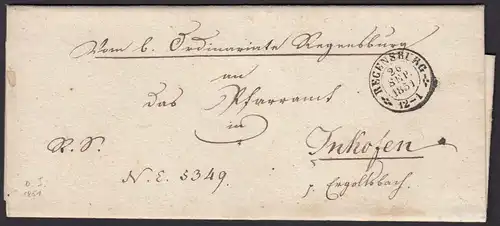 Vom b. Ordinariate Regensburg
an
das Pfarramt
in
R. S.
Inkofen
N. E. 5349.
p. Ergoltsbach.
REGENSBURG
26
SEP.
1851
12-1
1851